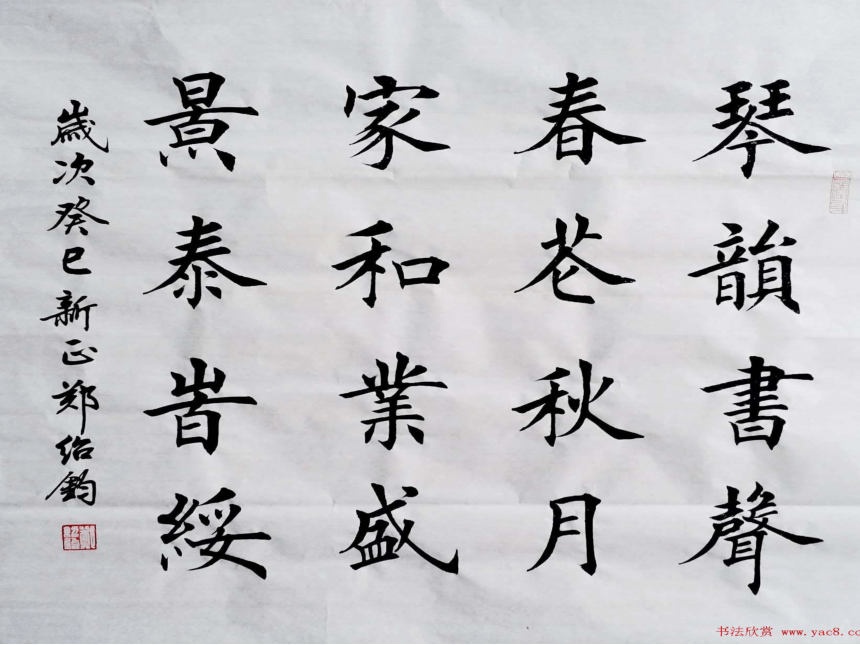 琴韻書聲
春苍秋月
家和業盛
景泰旹綏
歲次癸巳新正郑绍鈞
书法欣赏 www.yac8.co